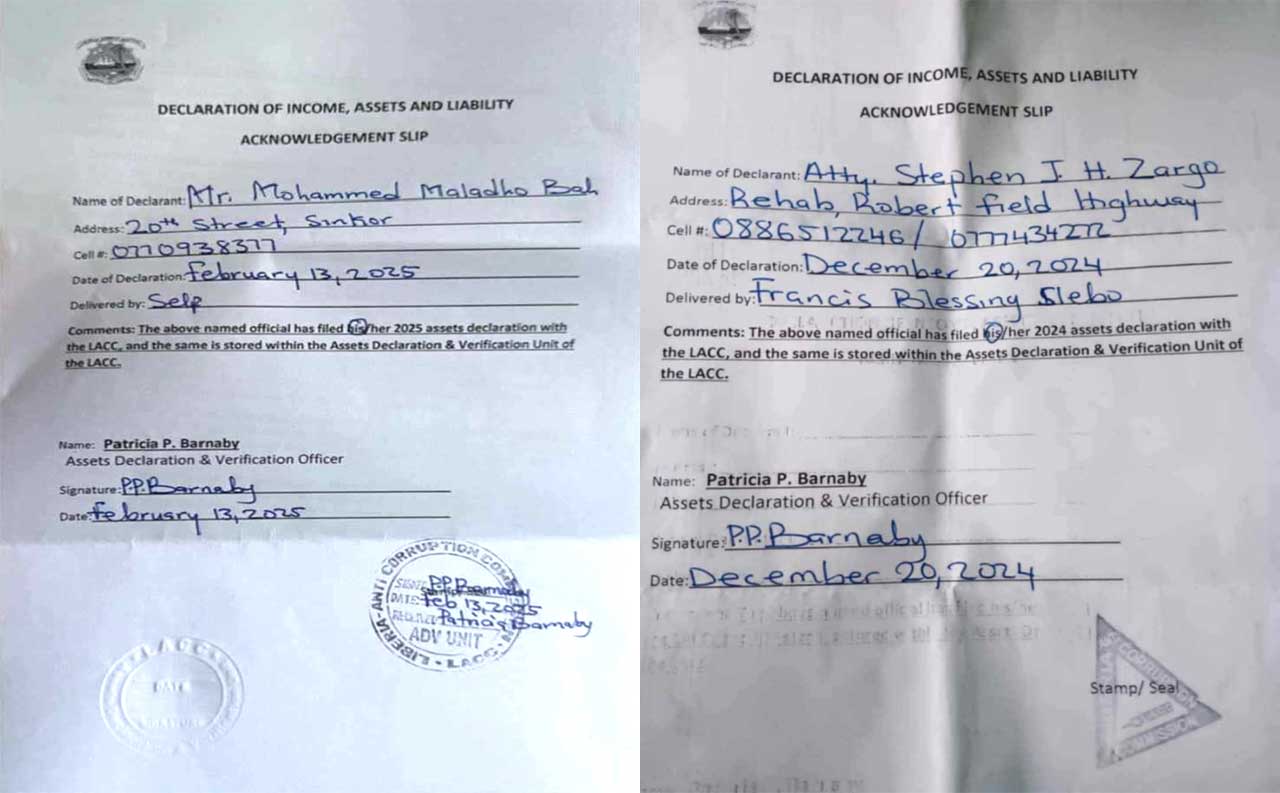 DECLARATION OF INCOME, ASSETS AND LIABILITY
ACKNOWLEDGEMENT SLIP
Name of Declarant: Mr. Mohammed Maladho Bah
Address: 20th Street, Sinkor
Cell #: 0770938377
Date of Declaration: February 13, 2025
Delivered by: Self
Comments: The above named official has filed his/her 2025 assets declaration with
the LACC, and the same is stored within the Assets Declaration & Verification Unit of
the LACC.
Name: Patricia P. Barnaby
Assets Declaration & Verification Officer
Signature: P.P. Barnaby
Date: February 13, 2025
LIBERIA ANTI CORRUPTION
P.P. Barnaby
DATE: Feb 13, 2025
Patricia Barnaby
ADV UNIT
LACC
LACC
DATE
DECLARATION OF INCOME, ASSETS AND LIABILITY
ACKNOWLEDGEMENT SLIP
Name of Declarant: Atty. Stephen J. H. Zargo
Address: Rehab, Robert field Highway
Cell #: 0886512246/ 0777434272
Date of Declaration: December 20, 2024
Delivered by: Francis Blessing Slebo
Comments: The above named official has filed his/her 2024 assets declaration with
the LACC, and the same is stored within the Assets Declaration & Verification Unit of
the LACC.
Name: Patricia P. Barnaby
Assets Declaration & Verification Officer
Signature: P.P. Barnaby
Date: December 20, 2024
Stamp/ Seal
CORRUPTION
COMMISSION